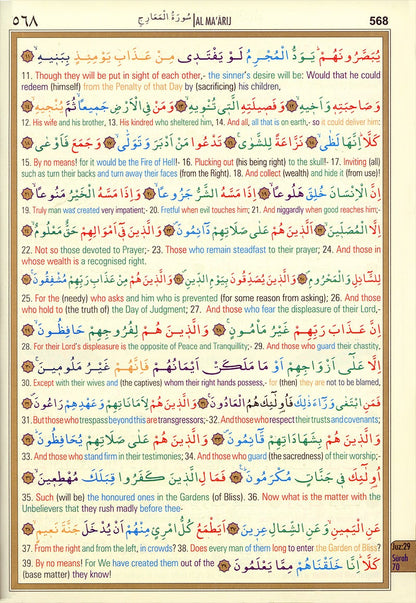 ٥٦٨ سُورَةُ الْمَعَارِجِ | AL MA'ĀRIJ 568
يُبَصَّرُونَهُمْ ۚ يَوَدُّ الْمُجْرِمُ لَوْ يَفْتَدِي مِنْ عَذَابِ يَوْمِئِذٍ بِبَنِيهِ ۙ
11. Though they will be put in sight of each other,- the sinner's desire will be: Would that he could
redeem (himself) from the Penalty of that Day by (sacrificing) his children,
وَصَاحِبَتِهِ وَأَخِيهِ ۙ وَفَصِيلَتِهِ الَّتِي تُئْوِيهِ ۙ وَمَنْ فِي الْأَرْضِ جَمِيعًا ۙ ثُمَّ يُنْجِيهِ ۙ
12. His wife and his brother, 13. His kindred who sheltered him, 14. And all, all that is on earth,- so it could deliver him:
كَلَّا ۖ إِنَّهَا لَظَىٰ ۙ نَزَّاعَةً لِلشَّوَىٰ ۚ تَدْعُوا مَنْ أَدْبَرَ وَتَوَلَّىٰ ۙ وَجَمَعَ فَأَوْعَىٰ
15. By no means! for it would be the Fire of Hell!- 16. Plucking out (his being right) to the skull!- 17. Inviting (all)
such as turn their backs and turn away their faces (from the Right). 18. And collect (wealth) and hide it (from use)!
إِنَّ الْإِنْسَانَ خُلِقَ هَلُوعًا ۙ إِذَا مَسَّهُ الشَّرُّ جَزُوعًا ۙ وَإِذَا مَسَّهُ الْخَيْرُ مَنُوعًا ۙ
19. Truly man was created very impatient;- 20. Fretful when evil touches him; 21. And niggardly when good reaches him;-
إِلَّا الْمُصَلِّينَ ۙ الَّذِينَ هُمْ عَلَىٰ صَلَاتِهِمْ دَائِمُونَ ۙ وَالَّذِينَ فِي أَمْوَالِهِمْ حَقٌّ مَعْلُومٌ ۙ
22. Not so those devoted to Prayer;- 23. Those who remain steadfast to their prayer; 24. And those in
whose wealth is a recognised right.
لِلسَّائِلِ وَالْمَحْرُومِ ۙ وَالَّذِينَ يُصَدِّقُونَ بِيَوْمِ الدِّينِ ۙ وَالَّذِينَ هُمْ مِنْ عَذَابِ رَبِّهِمْ مُشْفِقُونَ ۚ
25. For the (needy) who asks and him who is prevented (for some reason from asking); 26. And those
who hold to (the truth of) the Day of Judgment; 27. And those who fear the displeasure of their Lord,-
إِنَّ عَذَابَ رَبِّهِمْ غَيْرُ مَأْمُونٍ وَالَّذِينَ هُمْ لِفُرُوجِهِمْ حَافِظُونَ ۙ
28. For their Lord's displeasure is the opposite of Peace and Tranquillity;- 29. And those who guard their chastity.
إِلَّا عَلَىٰ أَزْوَاجِهِمْ أَوْ مَا مَلَكَتْ أَيْمَانُهُمْ فَإِنَّهُمْ غَيْرُ مَلُومِينَ ۚ
30. Except with their wives and (the captives) whom their right hands possess,- for (then) they are not to be blamed,
فَمَنِ ابْتَغَىٰ وَرَاءَ ذَٰلِكَ فَأُولَٰئِكَ هُمُ الْعَادُونَ ۚ وَالَّذِينَ هُمْ لِأَمَانَاتِهِمْ وَعَهْدِهِمْ رَاعُونَ ۙ
31. But those who trespass beyond this are transgressors;- 32. And those who respect their trusts and covenants;
وَالَّذِينَ هُمْ بِشَهَادَاتِهِمْ قَائِمُونَ ۙ وَالَّذِينَ هُمْ عَلَىٰ صَلَاتِهِمْ يُحَافِظُونَ ۚ
33. And those who stand firm in their testimonies; 34. And those who guard (the sacredness) of their worship;-
أُولَٰئِكَ فِي جَنَّاتٍ مُكْرَمُونَ ۚ فَمَالِ الَّذِينَ كَفَرُوا قِبَلَكَ مُهْطِعِينَ ۙ
35. Such (will be) the honoured ones in the Gardens (of Bliss). 36. Now what is the matter with the
Unbelievers that they rush madly before thee-
عَنِ الْيَمِينِ وَعَنِ الشِّمَالِ عِزِينَ أَيَطْمَعُ كُلُّ امْرِئٍ مِنْهُمْ أَنْ يُدْخَلَ جَنَّةَ نَعِيمٍ ۙ
37. From the right and from the left, in crowds? 38. Does every man of them long to enter the Garden of Bliss?
كَلَّا ۖ إِنَّا خَلَقْنَاهُمْ مِمَّا يَعْلَمُونَ
39. By no means! For We have created them out of the
(base matter) they know!
Juz:29
Sūrah
70